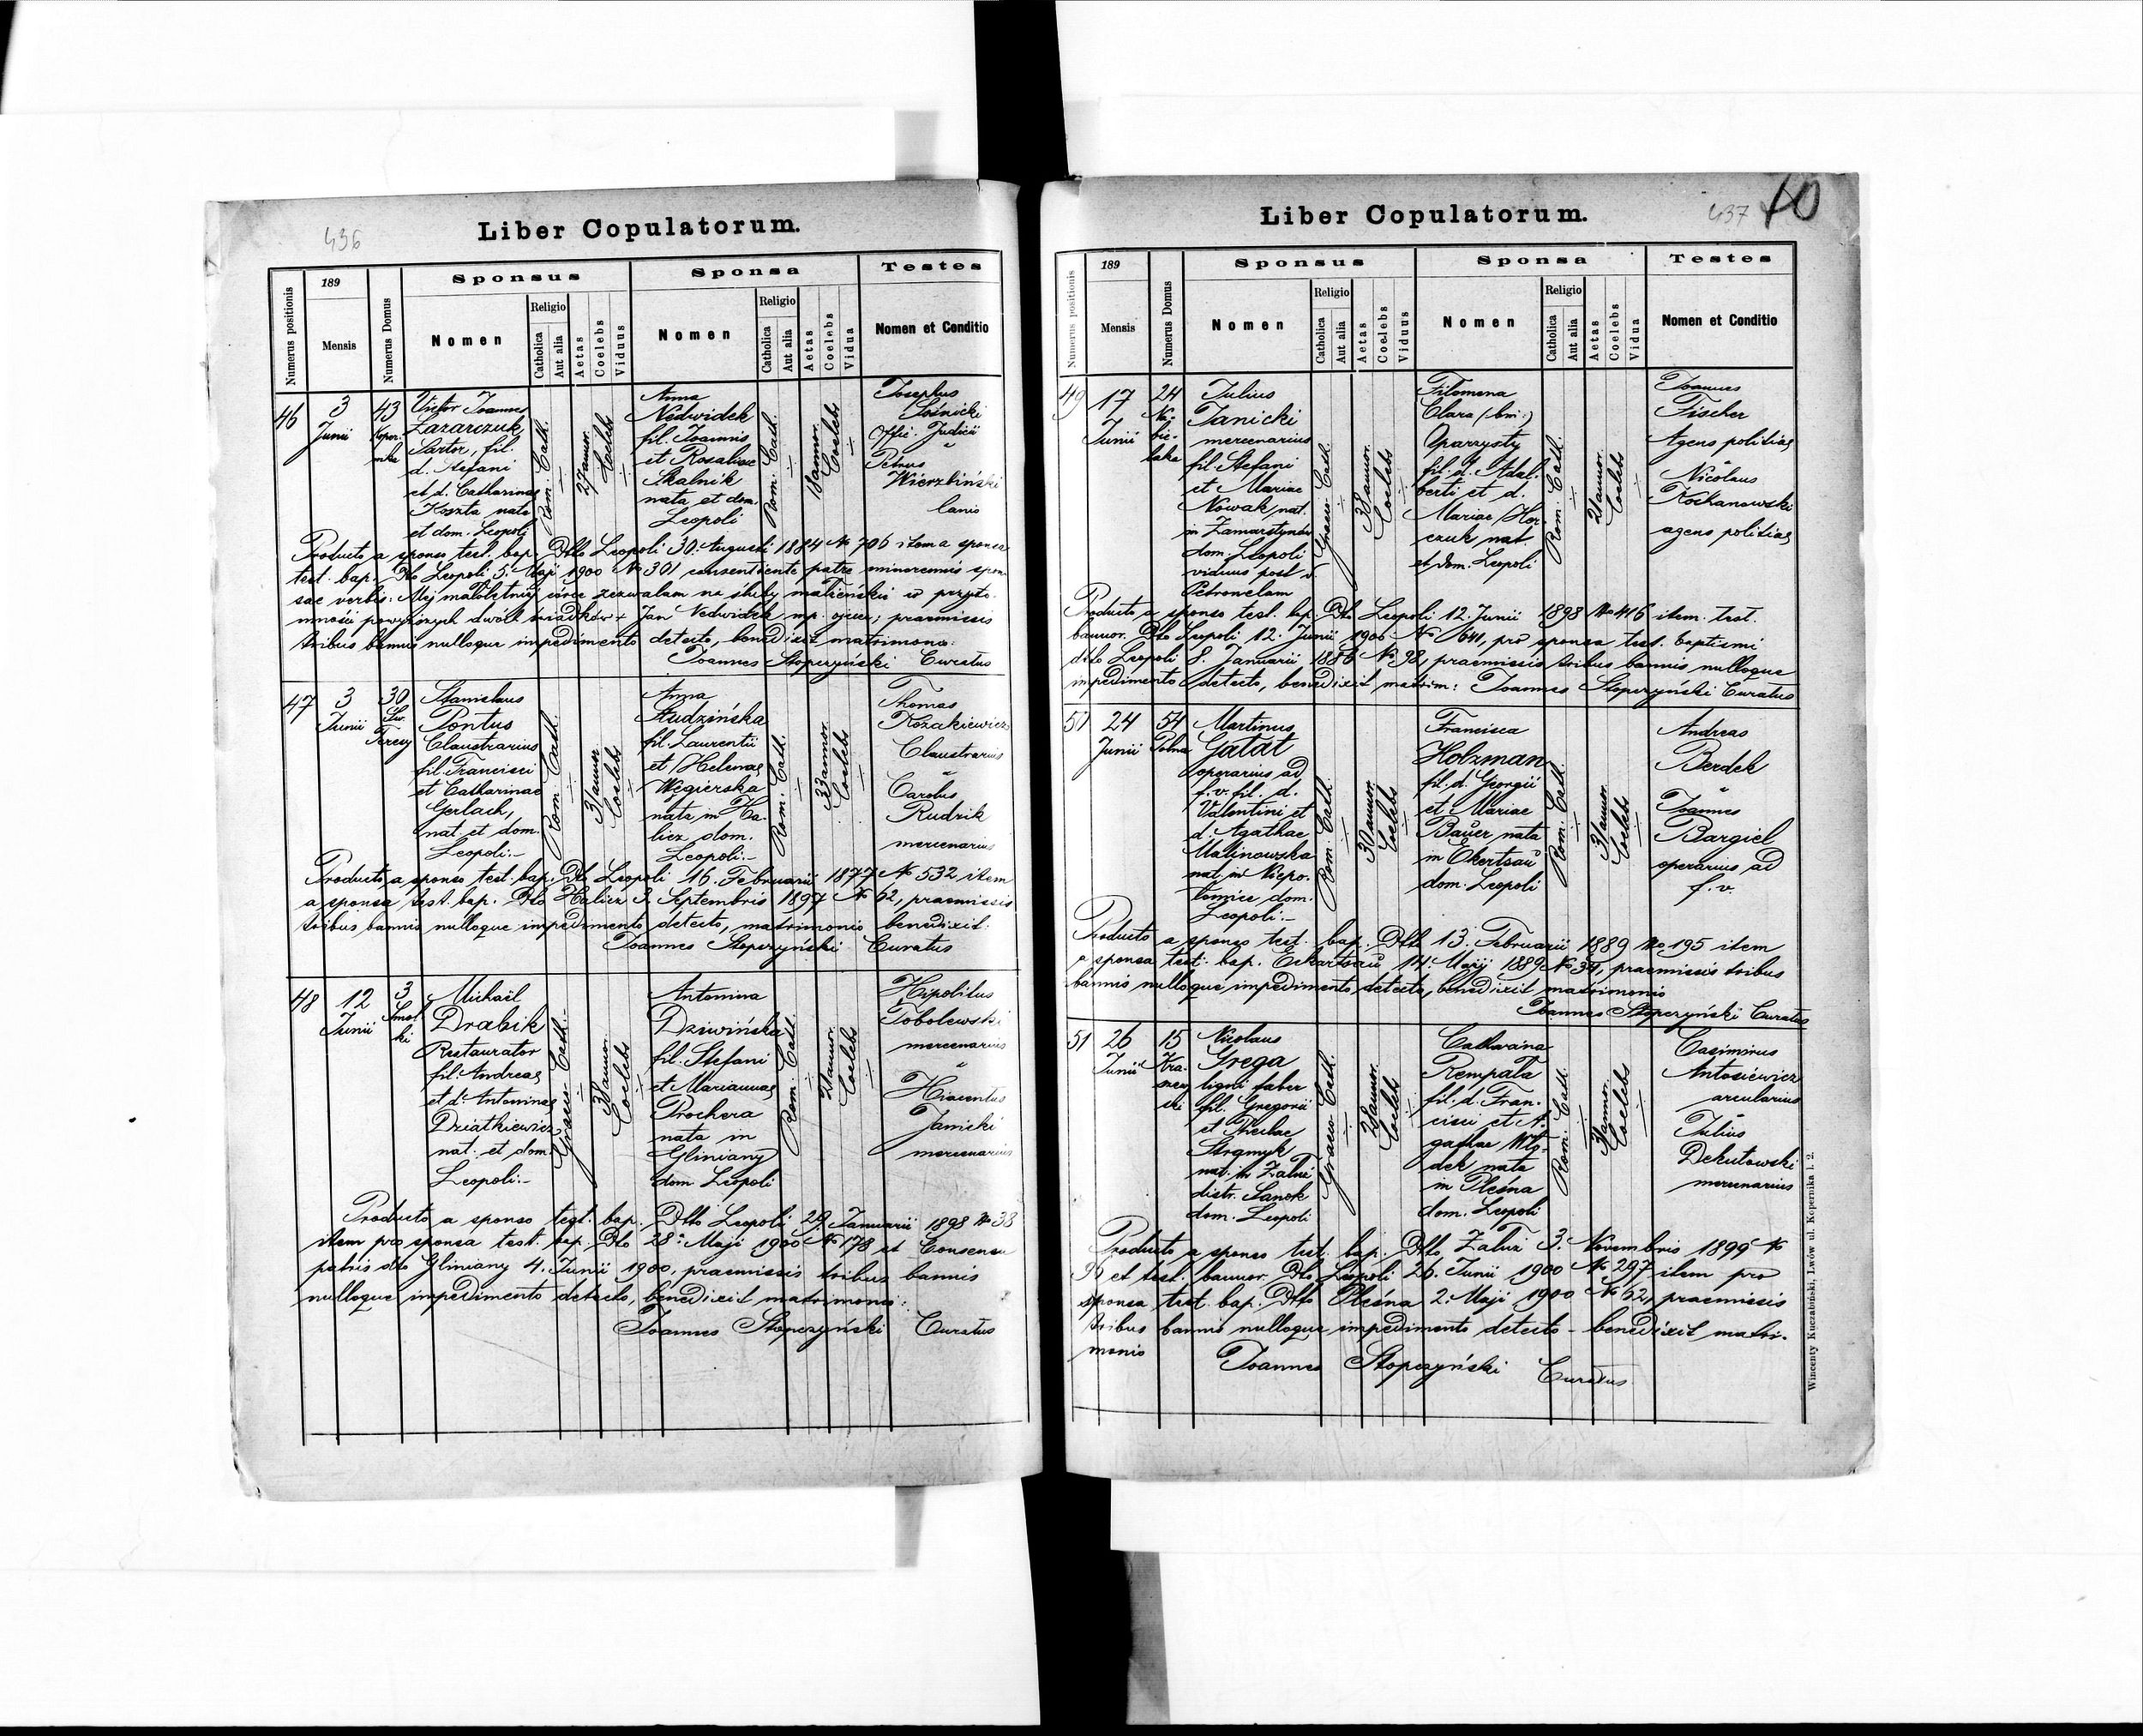 436
Liber Copulatorum.
Numerus positionis
189
Mensis
Numerus Domus
Sponsus
Nomen
Religio
Catholica
Aut alia
Aetas
Coelebs
Viduus
Sponsa
Nomen
Religio
Catholica
Aut alia
Aetas
Coelebs
Vidua
Testes
Nomen et Conditio
46
3
Junii
43
Victor Joannes
Lazarczuk
Sartor, fil.
d. Stefani
et d. Catharinae
Koszta nata
et dom. Leopoli
Rom. Cath.
27 annor.
Coelebs
Anna
Nedwidek
fil. Joannis
et Rosaliae
Skalnik
nata et dom.
Leopoli
Rom. Cath.
18 annor.
Coelebs
Josephus
Offic. Judicii
Petrus
Wierzbiński
lanio
Producto a sponso test. bap. Dtto Leopoli 30. Augusti 1884 No 706 item a sponsa
test. bap. Dtto Leopoli 5. Maji 1900 No 301 consentiente patre minorennis spon-
sae verbis: Mej małoletniej córce zezwalam na śluby małżeńskie w przyto-
mności powyższych dwóch świadków + Jan Nedwidek mp. ojciec; praemissis
tribus bannis nulloque impedimento detecto, benedixit matrimonio:
Joannes Stopczyński Curatus
47
3
Junii
30
Św.
Teresy
Stanislaus
Pontus
Claustrarius
fil. Francisci
et Catharinae
Gerlach,
nat. et dom.
Leopoli:-
Rom. Cath.
31 annor
Coelebs
Anna
Studzińska
fil. Laurentii
et Helenae
Węgierska
nata in Ha-
licz dom.
Leopoli:-
Rom. Cath.
33 annor
Coelebs
Thomas
Kozakiewicz
Claustrarius
Carolus
Rudzik
mercenarius
Producto a sponso test. bap. Dtto Leopoli 16. Februarii 1877 No 532 item
a sponsa test. bap. Dtto Halicz 3. Septembris 1897 No 62, praemissis
tribus bannis nulloque impedimento detecto, matrimonio benedixit.
Joannes Stopczyński Curatus
48
12
Junii
3
Smol-
ki
Michaël
Drabik
Restaurator
fil. Andreae
et d. Antoninae
Dziatkiewicz
nat. et dom.
Leopoli:-
Graeco Cath.
38 annor.
Coelebs
Antonina
Dziwińska
fil. Stefani
et Mariannae
Prochera
nata in
Gliniany
dom. Leopoli
Rom. Cath.
21 annor.
Coelebs
Hipolitus
Tobolewski
mercenarius
Hiacentus
Janicki
mercenarius
Producto a sponso test. bap. Dtto Leopoli 29. Januarii 1898 No 38
item pro sponsa test. bap. Dto 28. Maji 1900 No 178 et Consensu
patris dto Gliniany 4. Junii 1900, praemissis tribus bannis
nulloque impedimento detecto, benedixit matrimonio:
Joannes Stopczyński Curatus
437 40
Liber Copulatorum.
Numerus positionis
189
Mensis
Numerus Domus
Sponsus
Nomen
Religio
Catholica
Aut alia
Aetas
Coelebs
Viduus
Sponsa
Nomen
Religio
Catholica
Aut alia
Aetas
Coelebs
Vidua
Testes
Nomen et Conditio
49
17
Junii
24
Na-
bie-
laka
Julius
Janicki
mercenarius
fil. Stefani
et Mariae
Nowak nat.
in Zamarstynów
dom. Leopoli
viduus post d.
Petronelam
Graeco Cath.
38 annor.
Coelebs
Filomena
Clara (bin:)
Oparzysty
fil. d. Adal-
berti et d.
Mariae Hor-
czuk nat.
et dom. Leopoli
Rom. Cath.
21 annor.
Coelebs
Joannes
Fischer
Agens politiae
Nicolaus
Kochanowski
agens politiae
Producto a sponso test. bap. Dtto Leopoli 12. Junii 1898 No 416 item. test.
bannor. Dtto Leopoli 12. Junii 1900 No 641, pro sponsa test. baptismi
dtto Leopoli 8. Januarii 1886 No 98, praemissis tribus bannis nulloque
impedimento detecto, benedixit matrim: Joannes Stopczyński Curatus
24
Junii
54
Polna
Martinus
Gatat
operarius ad
f.v. fil. d.
Valentini et
d. Agathae
Malinowska
nat. in Niepo-
łomice, dom.
Leopoli:-
Rom. Cath.
30 annor.
Coelebs
Francisca
Holzman
fil. d. Georgii
et Mariae
Bauer nata
in Ekertsau
dom. Leopoli
Rom. Cath.
31 annor.
Coelebs
Andreas
Berdek
Joannes
Bargiel
operarius ad
f. v.
Producto a sponso test. bap. Dtto 13. Februarii 1889 No 195 item
a sponsa test. bap. Eckartsau 14. Maji 1889 No 34, praemissis tribus
bannis nulloque impedimento detecto, benedixit matrimonio
Joannes Stopczyński Curatus
51
26
Junii
15
Kra-
sic-
ki
Nicolaus
Grega
ligni faber
fil. Gregorii
et Theclae
nat. in Załuż
distr. Sanok
dom. Leopoli
Graeco Cath.
28 annor.
Coelebs
Catharina
Rempała
fil. d. Fran-
cisci et A-
gathae
nata
in Pleśna
dom. Leopoli
Rom. Cath.
31 annor.
Coelebs
Casimirus
Antosiewicz
arcularius
Julius
Dekutowski
mercenarius
Producto a sponso test. bap. Dtto Załuż 3. Novembris 1899 No
96 et test. bannor. Dto Leopoli 26. Junii 1900 No 297 item pro
sponsa test. bap. Dtto Pleśna 2. Maji 1900 No 62, praemissis
tribus bannis nulloque impedimento detecto - benedixit matri-
monio
Joannes Stopczyński Curatus
Wincenty Kuczabiński, Lwów ul. Kopernika l. 2.